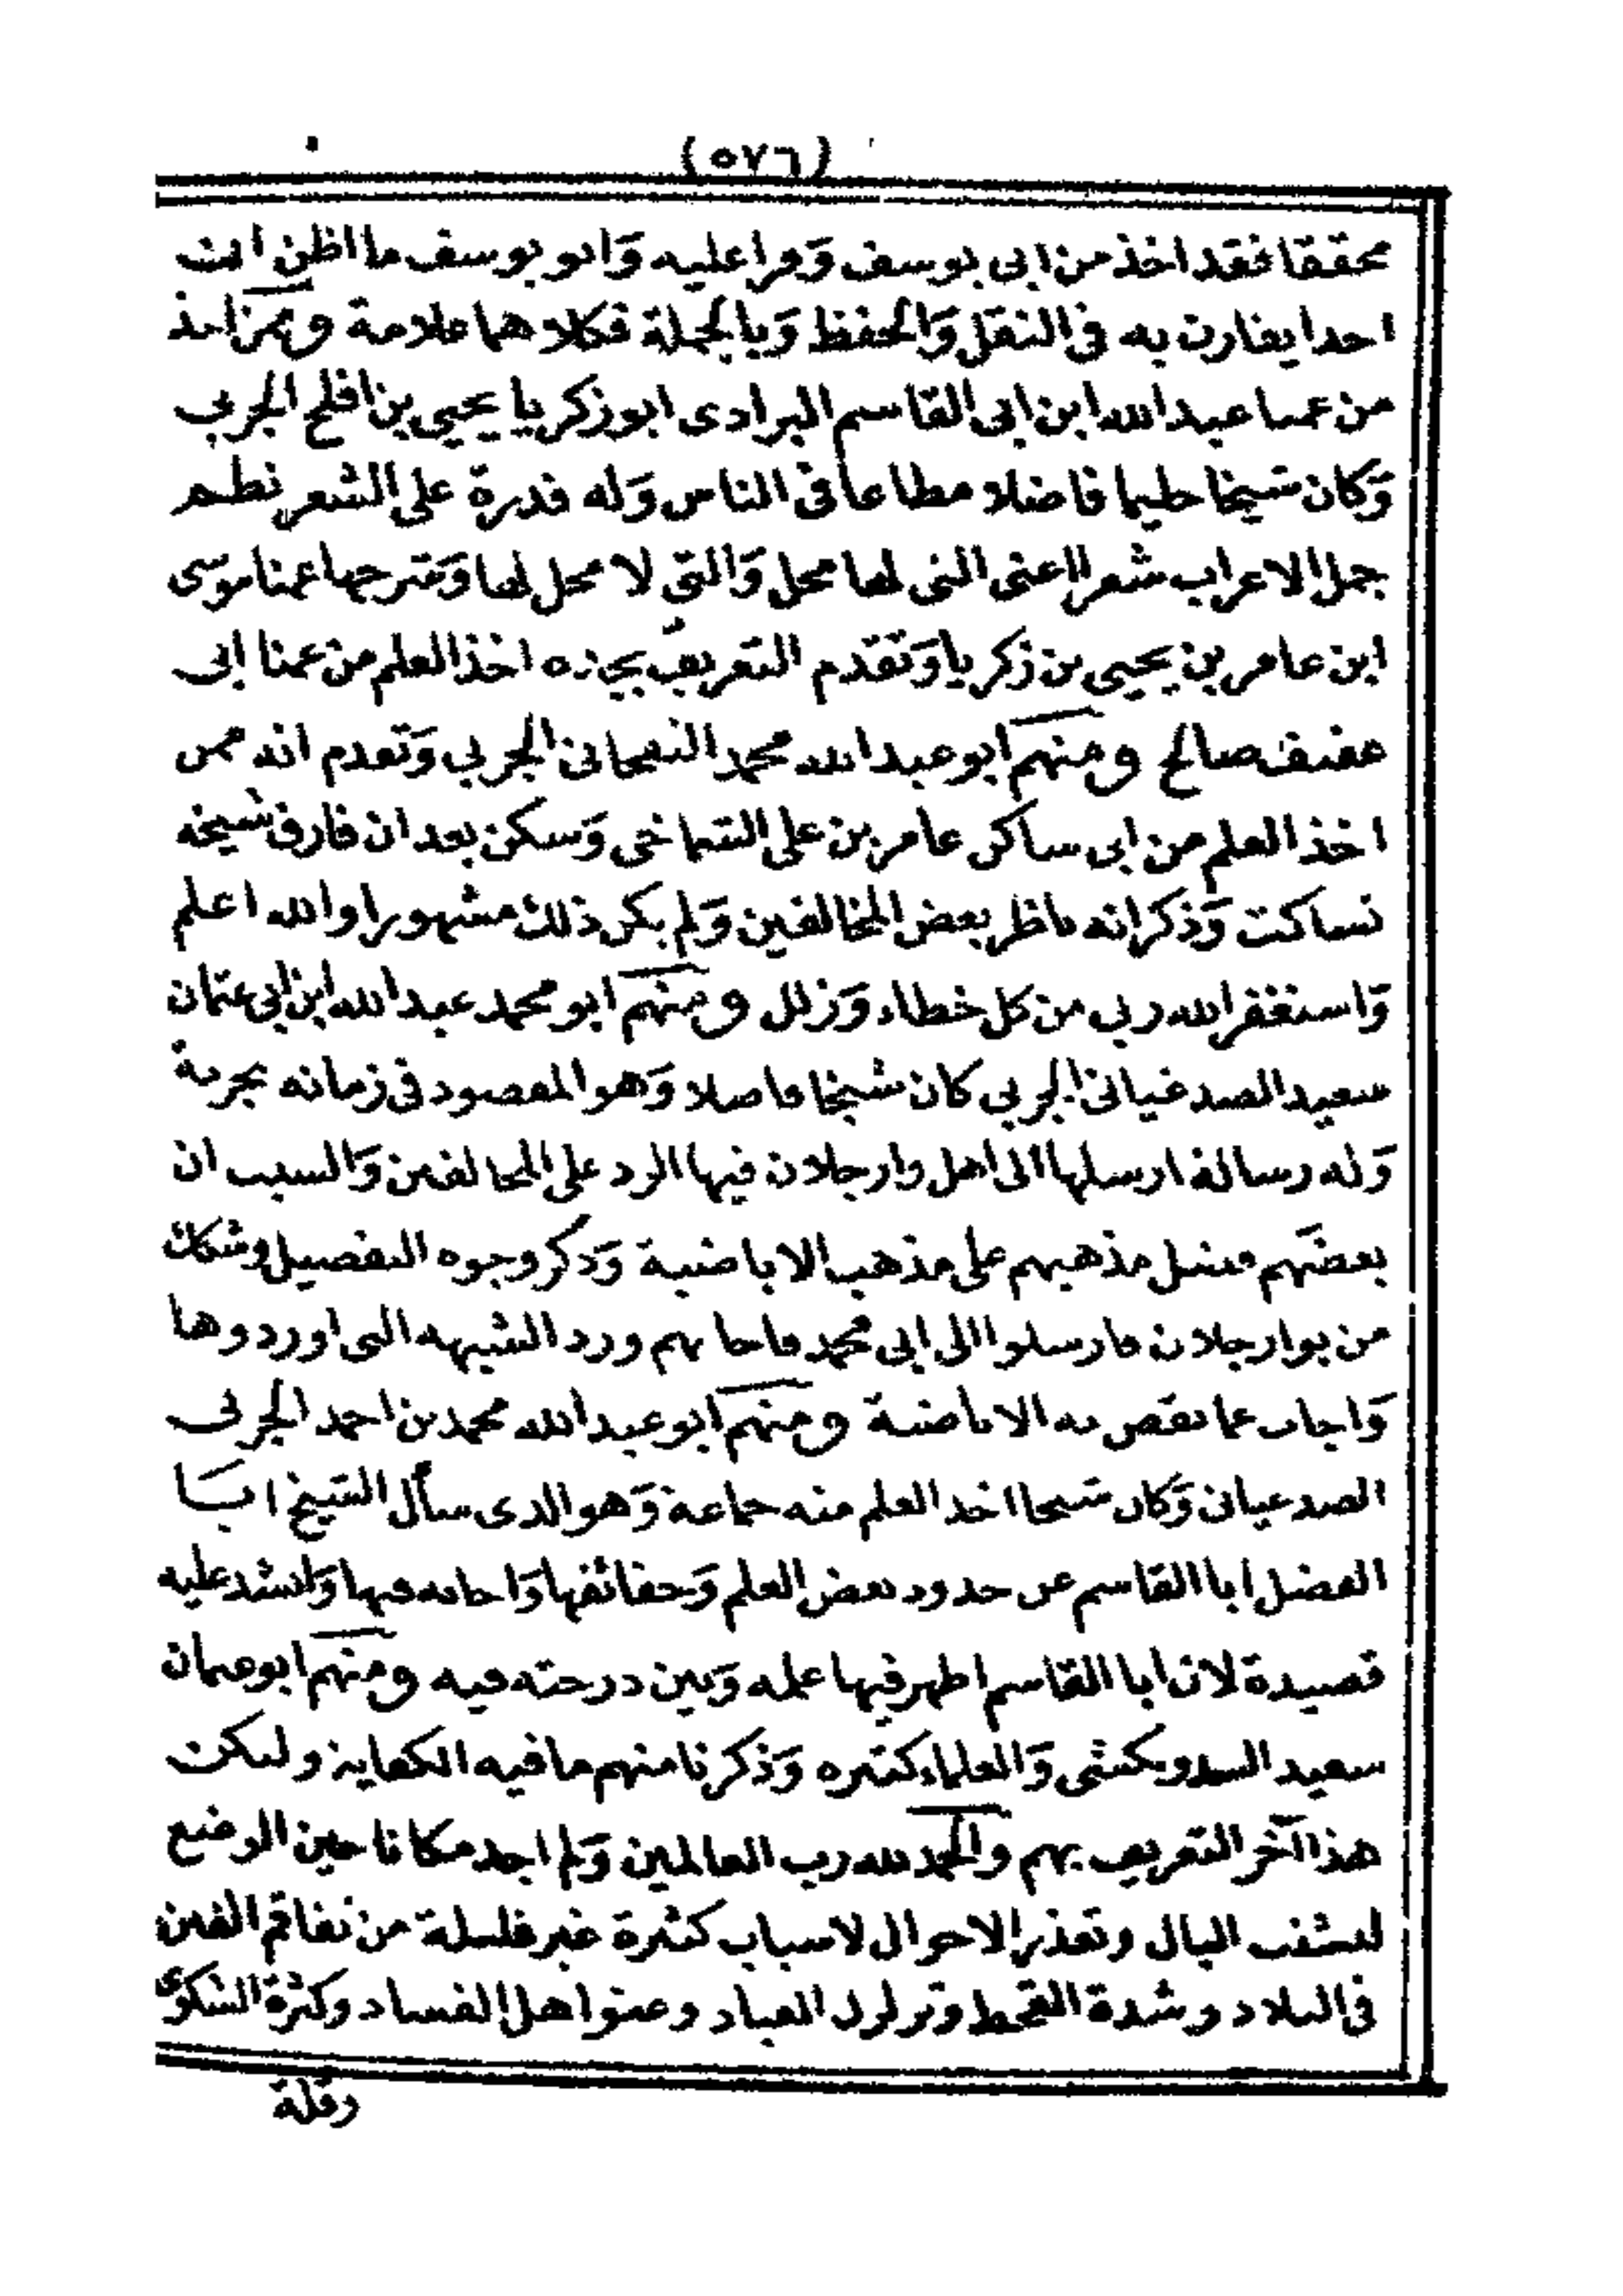 (٥٧٦)
محققا فقد اخذ من ابى يوسف وَقرا عليه وَابو يوسف ما اظن ان
احدا يقارن به فى النقل وَالحفظ وَبالجملة فكلاهما علامة وممن اخذ
من عمنا عبد الله ابن ابى القاسم البرادى ابو زكريا يحيى بن افلح الجربى
وَكان شيخا حليما فاضلا مطاعا فى الناس وَله قدرة على الشعر نظم
جمل الاعراب شعرا اعنى التى لها محل وَالتى لا محل لها وَشرحها عمنا موسى
ابن عامر بن يحيى بن زكريا وَتقدم التعريف بجده اخذ العلم من عمنا ابى
عفيف صالح ومنهم ابو عبد الله محمد النعمانى الجربي وَتقدم انه ممن
اخذ العلم من ابى ساكن عامر بن على الشماخى وَسكن بعد ان فارق شيخه
تساكنت وَذكر انه ناظر بعض المخالفين وَلم يكن ذلك مشهورا والله اعلم
وَاستغفر الله ربى من كل خطاء وَزلل ومنهم ابو محمد عبد الله ابن ابى عثمان
سعيد الصدغيانى الجربى كان شيخا فاضلا وَهو المقصود فى زمانه بجربة
وَله رسالة ارسلها الى اهل وارجلان فيها الرد على المخالفين وَالسبب ان
بعضهم فضل مذهبهم على مذهب الاباضية وَذكر وجوه التفصيل وشكك
من بوارجلان فارسلوا الى ابى محمد فاجابهم ورد الشبهه التى اوردوها
وَاجاب عما نقص به الاباضية ومنهم ابو عبد الله محمد بن احمد الجربى
الصدغيانى وَكان شيخا اخذ العلم منه جماعة وَهو الذى سأل الشيخ ابا
الفضل ابا القاسم عن حدود بعض العلم وَحقائقها وَاجابه فيها وَانشد عليه
قصيدة لان ابا القاسم اظهر فيها علمه وَبين درجته فيه ومنهم ابو عثمان
سعيد السدويكشى وَالعلماء كثيره وَذكرنا منهم ما فيه الكفاية ولكن
هذا آخر التعريف بهم والحمد لله رب العالمين وَلم اجد مكانا حين الوضع
لتشغب البال وتعذر الاحوال لاسباب كثيرة غير قليلة من تفاقم الفتن
فى البلاد وشدة القحط وتزلزل العباد وعتو اهل الفساد وكثرة الشكوى
وقلة